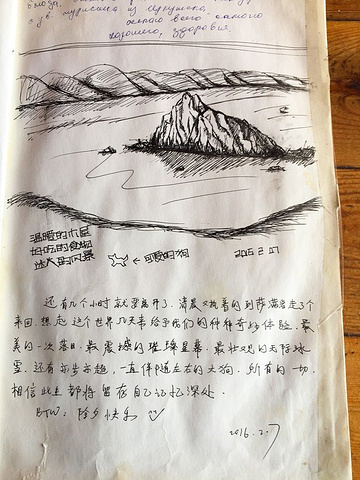 з дв. туристка из Иркутска,
желаю всего самого
хорошего, здоровья
温暖的木屋
好吃的食物
迷人的风景
← 可爱的狗
2016 2 07
还有几个小时就要离开了. 清晨又执着的到萨满岩走了个
来回. 想起这个世界几天来给予我们的种种奇妙体验. 最
美的一次落日. 最震撼的璀璨星幕. 最壮观的无际冰
雪. 还有亦步亦趋, 一直伴随左右的大狗. 所有的一切.
相信此生都将留存自己记忆深处.
BTW: 除夕快乐
2016. 2. 7